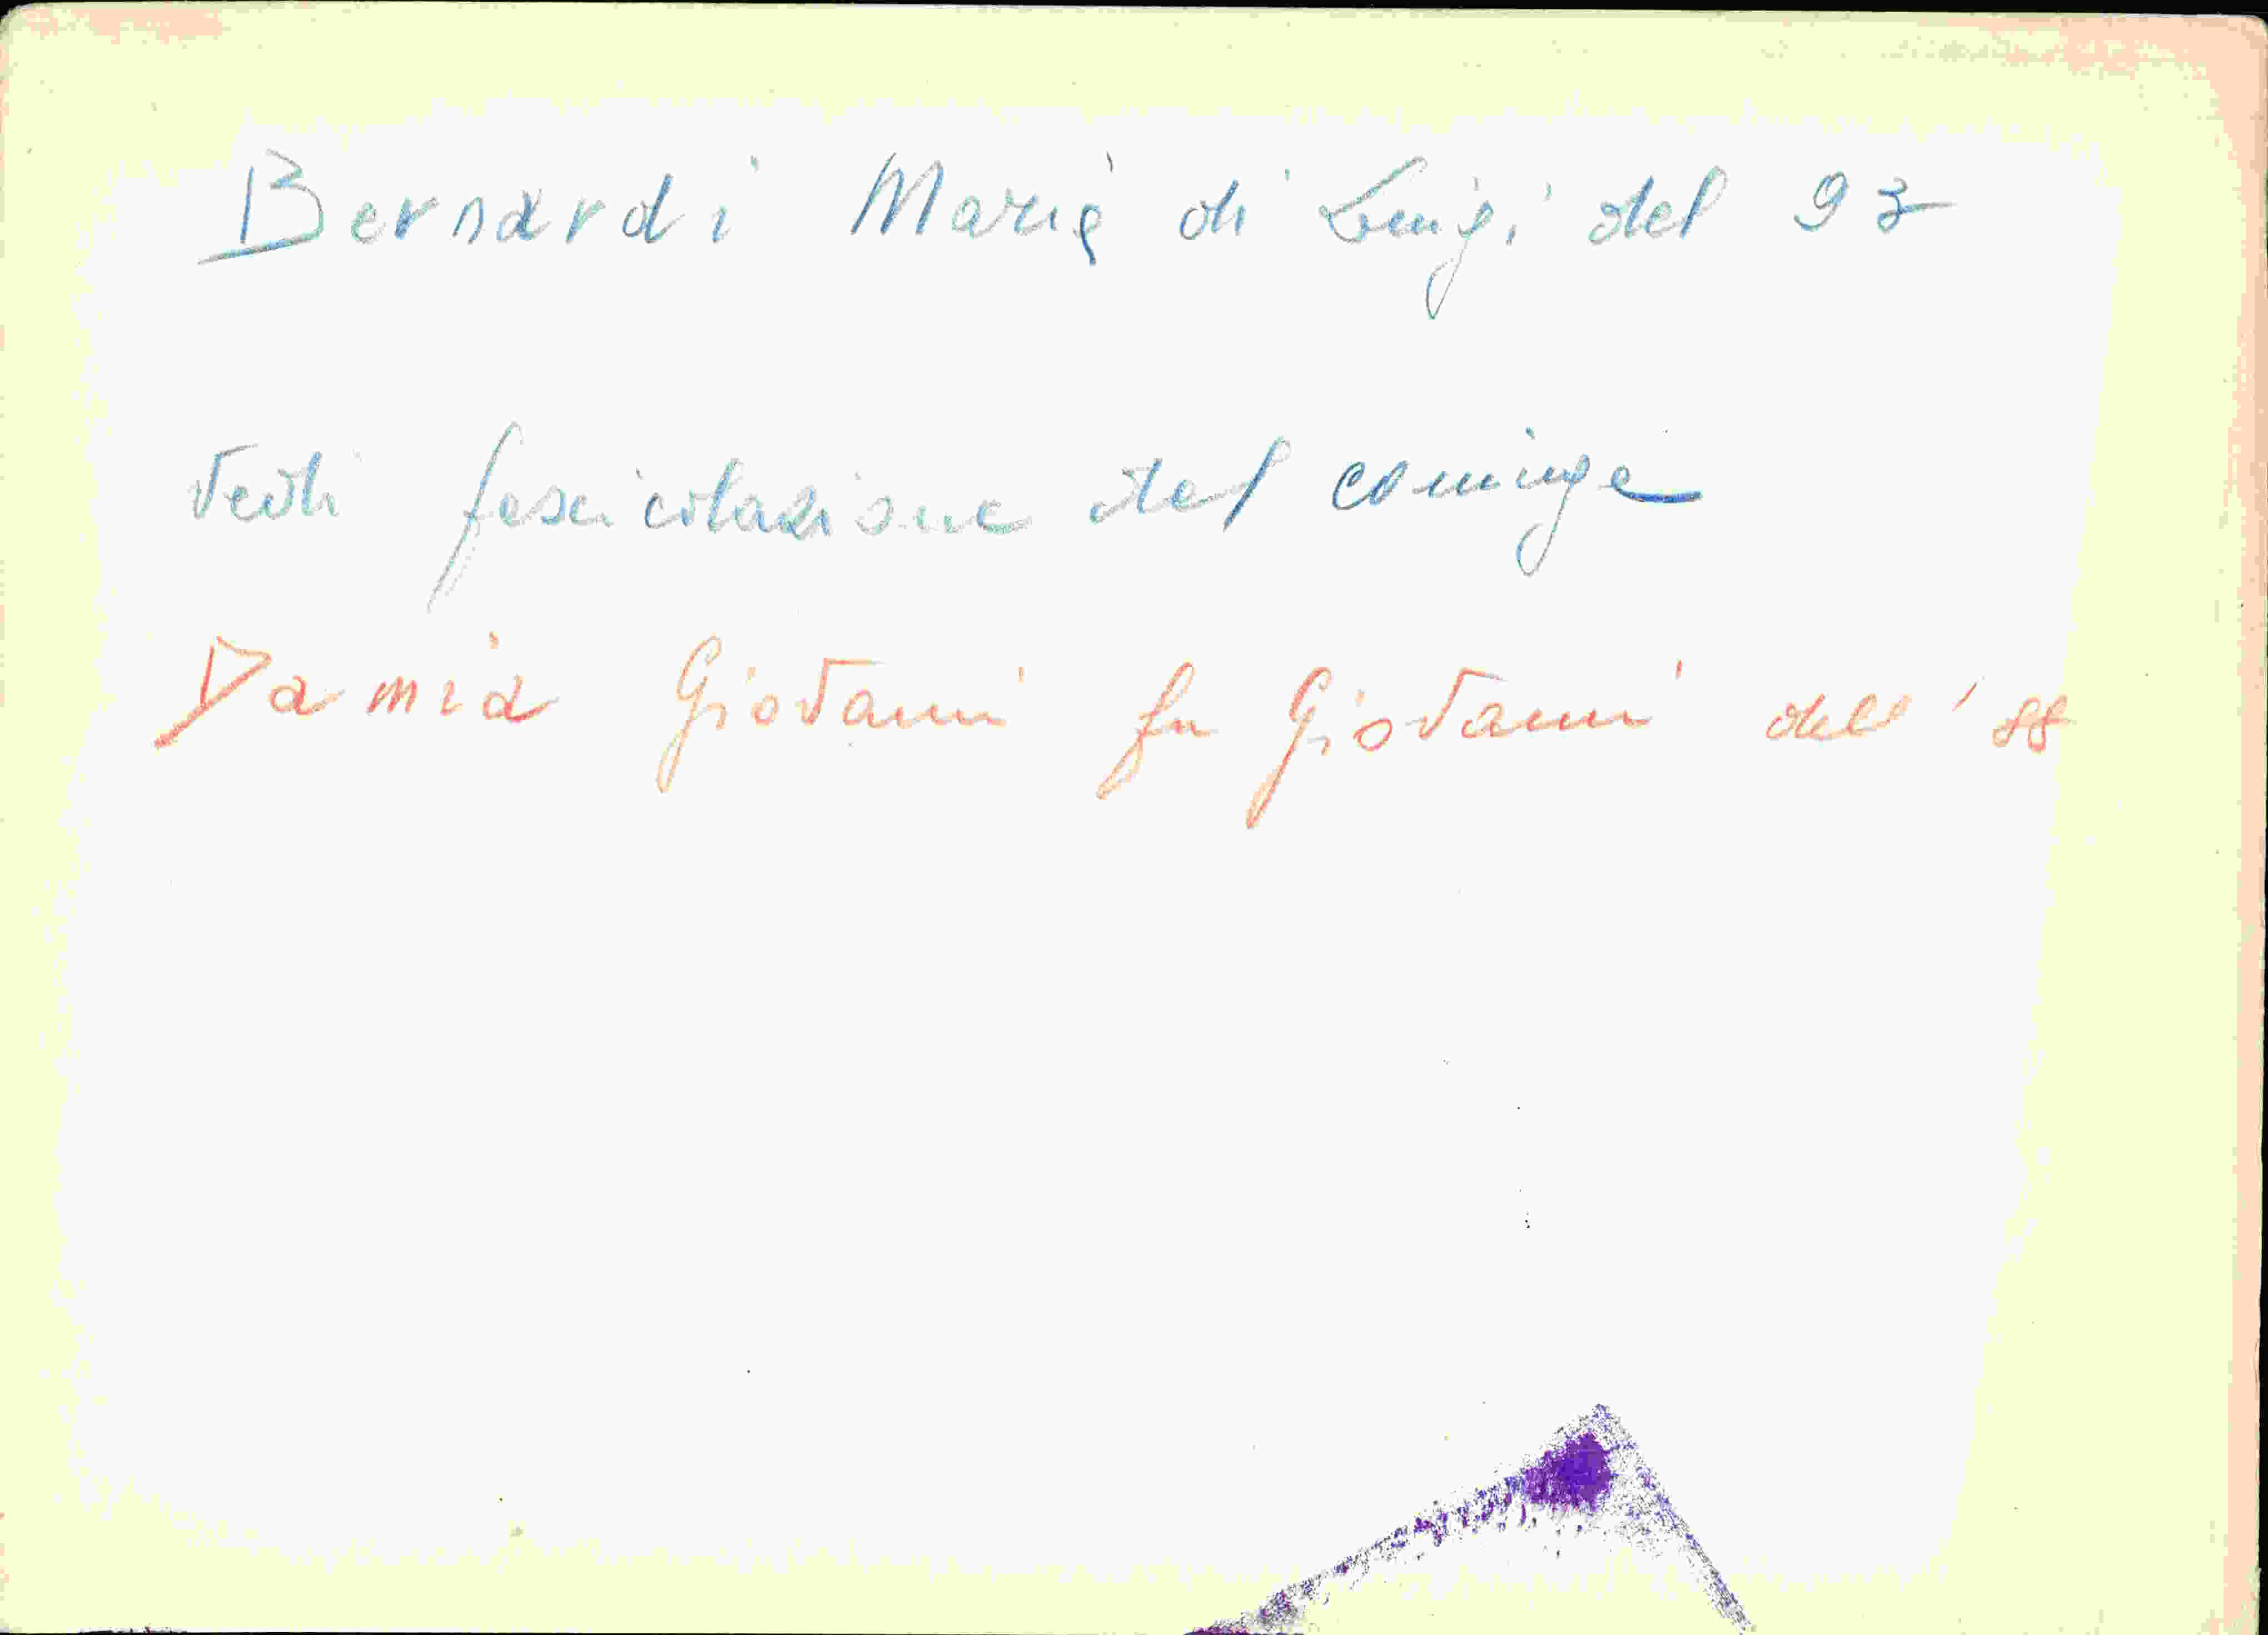 Bernardi Maria di Luigi del 93
Vedi fascicolazione del coniuge
Damia Giovanni fu Giovanni dell'88